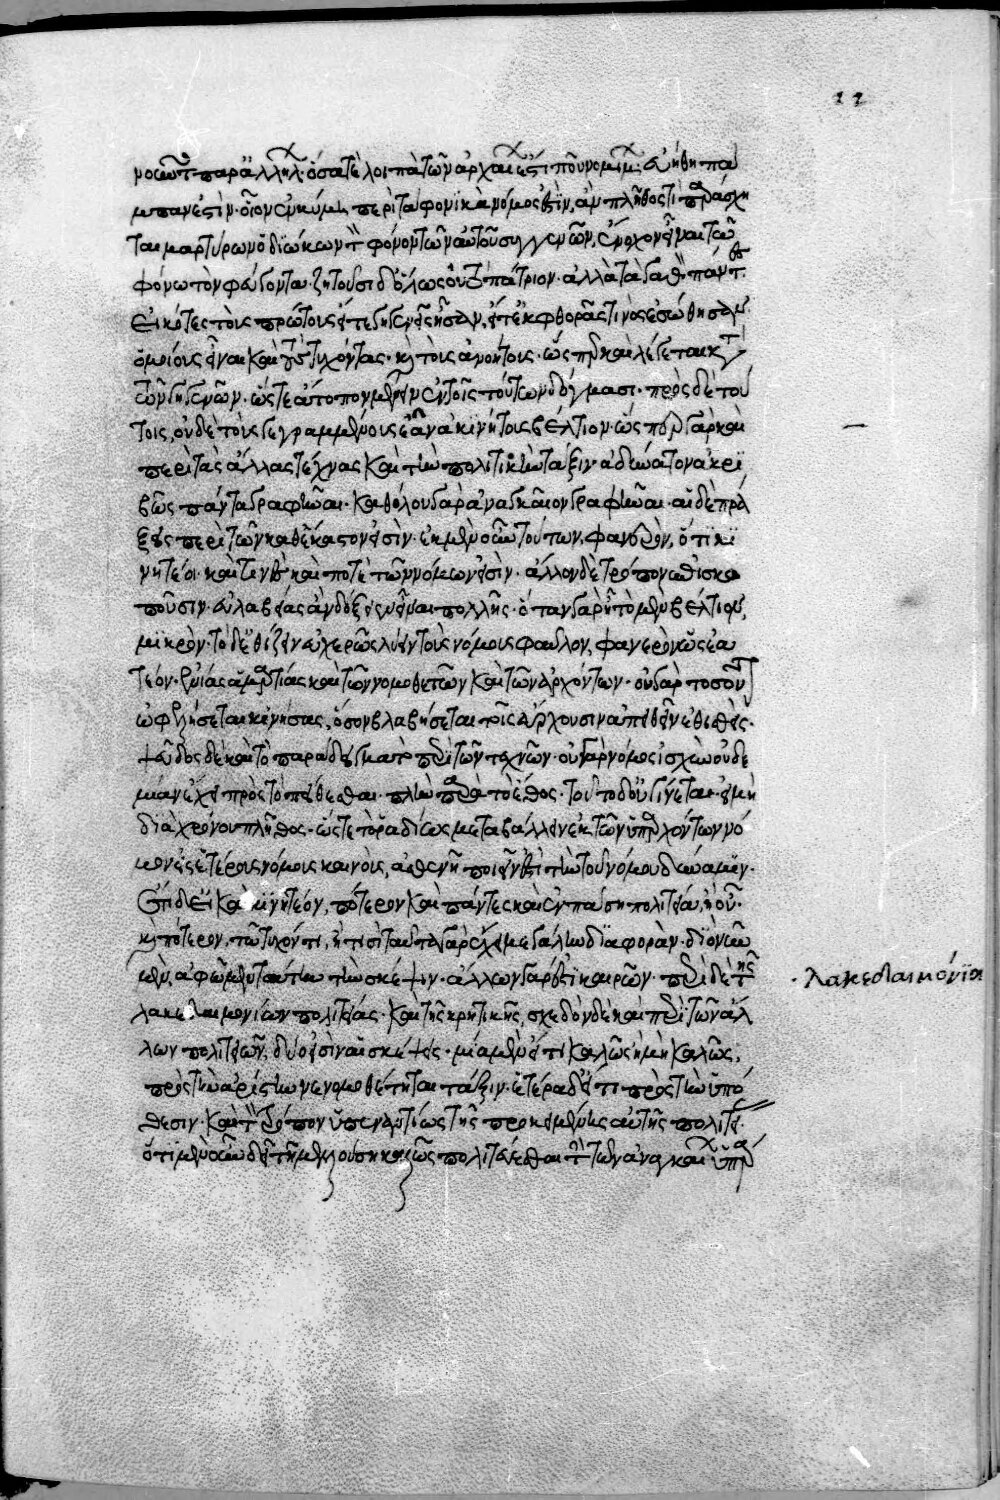 νοῦντο παρ' ἀλλήλων· ὅσα τε λοιπὰ τῶν ἀρχαίων ἐστί που νομίμων· εὐήθη πά
μπαν ἐστίν· οἷον ἐν κύμῃ περὶ τὰ φονικὰ νόμος ἐστὶν, ἂν πλῆθός τι παράσχη
ται μαρτύρων ὁ διώκων τὸν φόνον τῶν αὐτοῦ συγγενῶν, ἔνοχον εἶναι τῶ
φόνω τὸν φεύγοντα· ζητοῦσι δ' ὅλως οὐ τὸ πάτριον· ἀλλὰ τἀγαθὸν πάντες·
εἰκός τε τοὺς πρώτους εἴτε γηγενεῖς ἦσαν, εἴτ' ἐκ φθορᾶς τινὸς ἐσώθησαν
ὁμοίους εἶναι καὶ τοὺς τυχόντας· καὶ τοὺς ἀνοήτους· ὥσπερ καὶ λέγεται κατὰ
τῶν γηγενῶν· ὥστε ἄτοπον μένειν ἐν τοῖς τούτων δόγμασι· πρὸς δὲ τού
τοις, οὐδὲ τοὺς γεγραμμένους ἐᾶν ἀκινήτους βέλτιον· ὥσπερ γὰρ καὶ
περὶ τὰς ἄλλας τέχνας καὶ τὴν πολιτικὴν τάξιν· ἀδύνατον ἀκρι
βῶς πάντα γραφῆναι· καθόλου γὰρ ἀναγκαῖον γραφῆναι· αἱ δὲ πρά
ξεις περὶ τῶν καθέκαστον εἰσὶν· ἐκ μὲν οὖν τούτων, φανερὸν, ὅτι κι
νητέοι· καὶ τινὲς καὶ ποτὲ τῶν νόμων εἰσὶν· ἄλλον δὲ τρόπον ἐπισκο
ποῦσιν· εὐλαβείας ἂν δόξειεν εἶναι πολλῆς· ὅταν γὰρ ἦ τὸ μὲν βέλτιον,
μικρὸν· τὸ δ' ἐθίζειν εὐχερῶς λύειν τοὺς νόμους φαῦλον, φανερὸν ὡς ἐα
τέον· ἐνίας ἁμαρτίας καὶ τῶν νομοθετῶν καὶ τῶν ἀρχόντων· οὐ γὰρ τοσοῦτ
ὠφελήσεται κινήσας, ὅσον βλαβήσεται τοῖς ἄρχουσιν ἀπειθεῖν ἐθισθείς·
ψεῦδος δὲ καὶ τὸ παράδειγμα τὸ περὶ τῶν τεχνῶν· οὐ γὰρ νόμος ἰσχὺν οὐδε
μίαν ἔχει πρὸς τὸ πείθεσθαι· πλὴν παρὰ τὸ ἔθος· τοῦτο δ' οὐ γίνεται· εἰ μὴ
διὰ χρόνου πλῆθος· ὥστε τὸ ῥαδίως μεταβάλλειν ἐκ τῶν ὑπαρχόντων νό
μων εἰς ἑτέρους νόμους καινοὺς, ἀσθενῆ ποιεῖν ἐστὶ τὴν τοῦ νόμου δύναμιν·
ἔτι δ' εἰ καὶ κινητέον, πότερον καὶ πάντες καὶ ἐν πάσῃ πολιτεία, ἢ οὔ·
καὶ πότερον, τῶ τυχόντι, ἢ τισί· ταῦτα γὰρ ἔχει μεγάλην διαφορὰν· διὸ νῦν
μὲν, ἀφῶμεν ταύτην τὴν σκέψιν· ἄλλων γάρ ἐστι καιρῶν· περὶ δὲ τῆς
λακεδαιμονίων πολιτείας· καὶ τῆς κρητικῆς, σχεδὸν δὲ καὶ περὶ τῶν ἄλ
λων πολιτειῶν, δύο εἰσὶν αἱ σκέψεις· μία μὲν εἴ τι καλῶς ἢ μὴ καλῶς,
πρὸς τὴν ἀρίστην νενομοθέτηται τάξιν· ἑτέρα δ' εἴ τι πρὸς τὴν ὑπό
θεσιν καὶ τὸν τρόπον ὑπεναντίως τῆς προκειμένης αὐτῆς πολιτεί·
ὅτι μὲν οὖν δεῖ τῆ μελλούση καλῶς πολιτεύεσθαι τὴν τῶν ἀναγκαίων ὑπάρ
· λακεδαιμόνϊοι